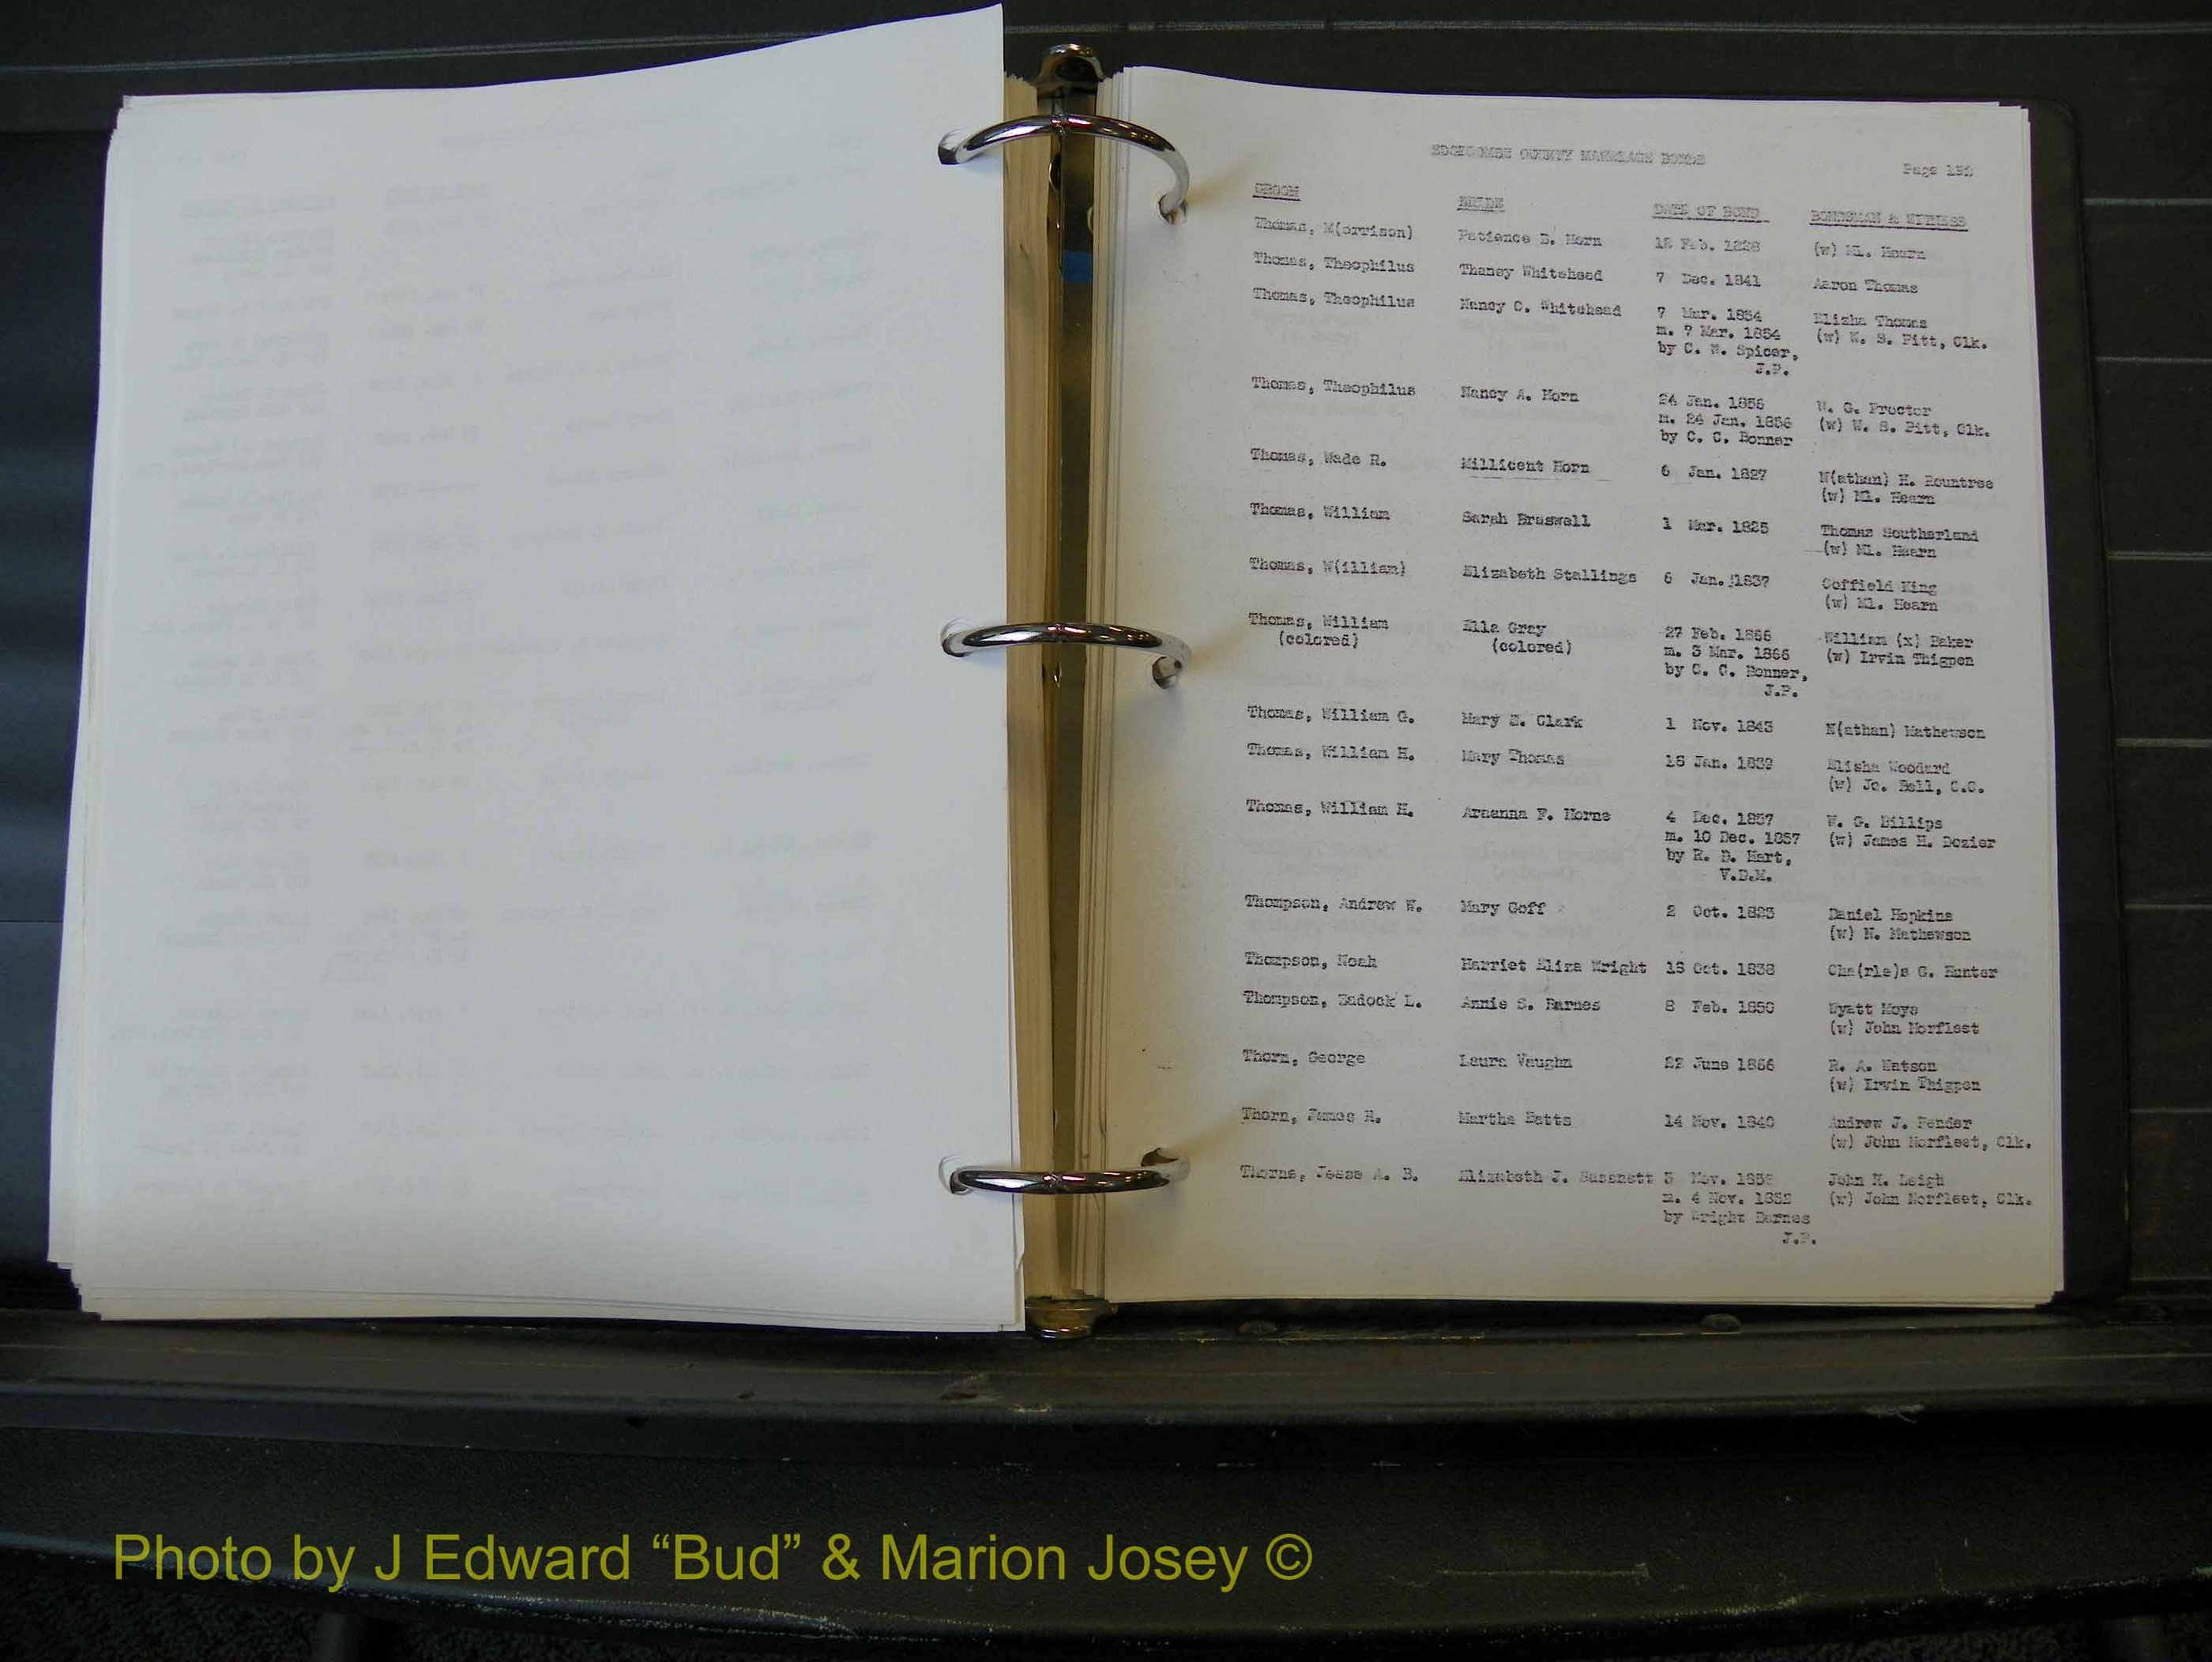 EDGECOMBE COUNTY MARRIAGE BONDS
Page
GROOM BRIDE DATE OF BOND BONDSMAN & WITNESS
Thomas, M(orrison) Patience B. Horn Feb. 1828 (w) Ml. Hearn
Thomas, Theophilus Thaney Whitehead 7 Dec. 1841 Aaron Thomas
Thomas, Theophilus Nancy C. Whitehead 7 Mar. 1854 Elisha Thomas
m. 7 Mar. 1854 (w) W. S. Pitt, Clk.
by C. W. Spicer,
J.P.
Thomas, Theophilus Nancy A. Horn 24 Jan. 1856 W. G. Proctor
m. 24 Jan. 1856 (w) W. S. Pitt, Clk.
by C. C. Bonner
Thomas, Wade R. Millicent Horn 6 Jan. 1827 N(athan) H. Rountree
(w) Ml. Hearn
Thomas, William Sarah Braswell 1 Mar. 1825 Thomas Southerland
(w) Ml. Hearn
Thomas, W(illiam) Elizabeth Stallings 6 Jan. 1837 Coffield King
(w) Ml. Hearn
Thomas, William Ella Gray 27 Feb. 1866 William (x) Baker
(colored) (colored) m. 3 Mar. 1866 (w) Irvin Thigpen
by C. C. Bonner,
J.P.
Thomas, William G. Mary E. Clark 1 Nov. 1843 N(athan) Mathewson
Thomas, William H. Mary Thomas Jan. 1839 Elisha Woodard
(w) Jo. Bell, C.C.
Thomas, William H. Araanna F. Horne 4 Dec. 1857 W. G. Billips
m. 10 Dec. 1857 (w) James H. Dozier
by R. B. Hart,
V.D.M.
Thompson, Andrew W. Mary Goff 2 Oct. 1823 Daniel Hopkins
(w) N. Mathewson
Thompson, Noah Harriet Eliza Wright Oct. 1838 Cha(rle)s G. Hunter
Thompson, Zadock L. Annie S. Barnes 8 Feb. 1850 Wyatt Moye
(w) John Norfleet
Thorn, George Laura Vaughn 22 June 1866 R. A. Watson
(w) Irvin Thigpen
Thorn, James H. Martha Batts 14 Nov. 1840 Andrew J. Pender
(w) John Norfleet, Clk.
Thorne, Jesse A. B. Elizabeth J. Sassnett 3 Nov. John K. Leigh
m. 4 Nov. (w) John Norfleet, Clk.
by Wright Barnes
J.P.
Photo by J Edward “Bud” & Marion Josey ©